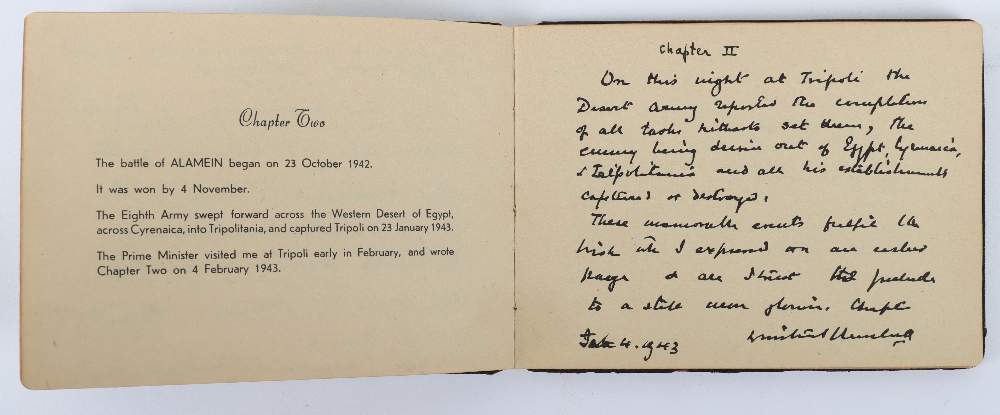 Chapter Two
The battle of ALAMEIN began on 23 October 1942.
It was won by 4 November.
The Eighth Army swept forward across the Western Desert of Egypt,
across Cyrenaica, into Tripolitania, and captured Tripoli on 23 January 1943.
The Prime Minister visited me at Tripoli early in February, and wrote
Chapter Two on 4 February 1943.
Chapter II
On this night at Tripoli the
Desert Army reported the completion
of all tasks hitherto set them, the
enemy being driven out of Egypt, Cyrenaica,
& Tripolitania and all his establishments
captured or destroyed.
These memorable events fulfil the
wish wh I expressed on an earlier
page & are I trust the prelude
to a still more glorious Chapter
Feb 4. 1943 Winston S. Churchill